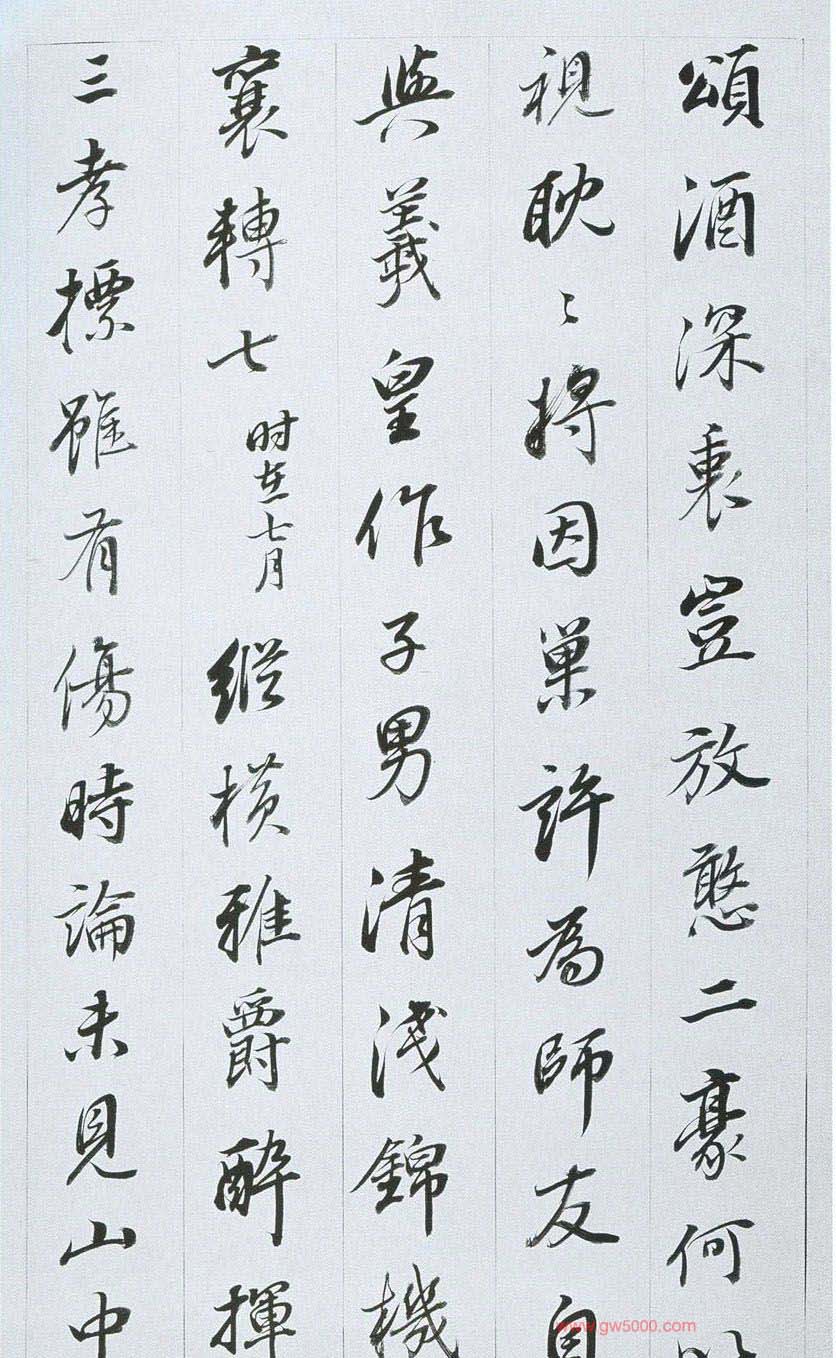 頌酒深衷豈放憨二豪何
視耽〻將因巢許為師友自
與羲皇作子男清淺錦機
襄轉七时在七月縱橫雅爵醉揮
三孝標雖有傷時論未見山中
www.gw5000.com